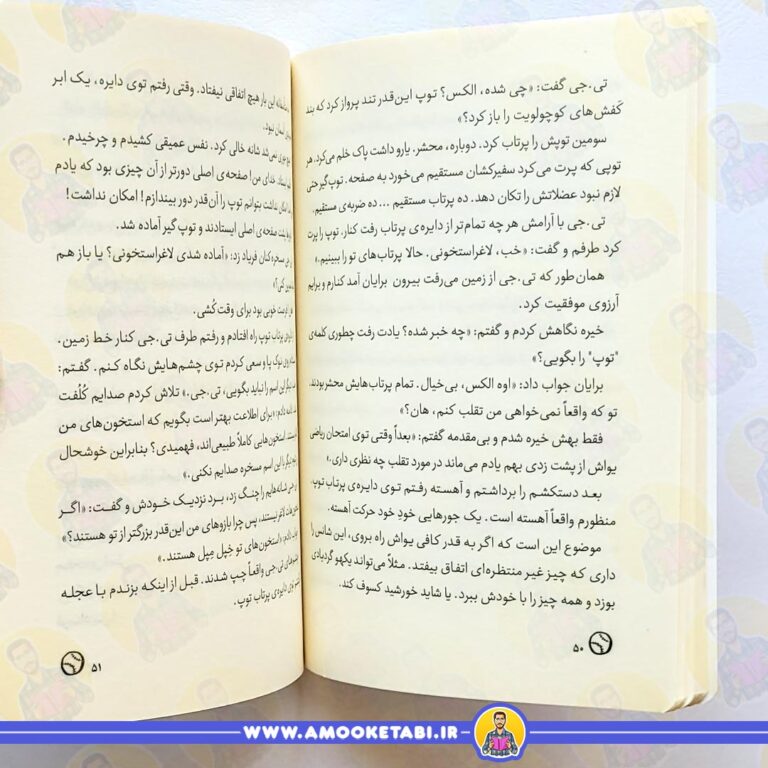 تی.جی گفت: «چی شده، الکس؟ توپ این‌قدر تند پرواز کرد که بند
کَفش‌های کوچولویت را باز کرد؟»
سومین توپش را پرتاب کرد. دوباره، محشر. یارو داشت پاک خلم می‌کرد. هر
توپی که پرت می‌کرد سفیرکشان مستقیم می‌خورد به صفحه. توپ‌گیر حتی
لازم نبود عضلاتش را تکان دهد. ده پرتاب مستقیم ... ده ضربه‌ی مستقیم.
تی.جی با آرامش هر چه تمام‌تر از دایره‌ی پرتاب رفت کنار. توپ را پرت
کرد طرفم و گفت: «خب، لاغراستخونی. حالا پرتاب‌های تو را ببینیم.»
همان‌طور که تی.جی از زمین می‌رفت بیرون برایان آمد کنارم و برایم
آرزوی موفقیت کرد.
خیره نگاهش کردم و گفتم: «چه خبر شده؟ یادت رفت چطوری کلمه‌ی
"توپ" را بگویی؟»
برایان جواب داد: «اوه الکس، بی‌خیال. تمام پرتاب‌هایش محشر بودند.
تو که واقعاً نمی‌خواهی من تقلب کنم، هان؟»
فقط بهش خیره شدم و بی‌مقدمه گفتم: «بعداً وقتی توی امتحان ریاضی
یواش از پشت زدی بهم یادم می‌ماند در مورد تقلب چه نظری داری.»
بعد دستکشم را برداشتم و آهسته رفتم توی دایره‌ی پرتاب توپ.
منظورم واقعاً آهسته است. یک جورهایی خودِ خود حرکت آهسته.
موضوع این است که اگر به قدر کافی یواش راه بروی، این شانس را
داری که چیز غیر منتظره‌ای اتفاق بیفتد. مثلاً می‌تواند یکهو گردبادی
بوزد و همه چیز را با خودش ببرد. یا شاید خورشید کسوف کند.
۵۰
این بار هیچ اتفاقی نیفتاد. وقتی رفتم توی دایره، یک ابر
نبود.
شد شانه خالی کرد. نفس عمیقی کشیدم و چرخیدم.
خدای من! صفحه‌ی اصلی دورتر از آن چیزی بود که یادم
نداشت بتوانم توپ را آن‌قدر دور بیندازم! امکان نداشت!
پشت صفحه‌ی اصلی ایستادند و توپ گیر آماده شد.
مسخره‌کنان فریاد زد: «آماده شدی لاغراستخونی؟ یا باز هم
کنی؟»
فرصت خوبی بود برای وقت کُشی.
پرتاب توپ راه افتادم و رفتم طرف تی.جی کنار خط زمین.
نوک پا و سعی کردم توی چشم‌هایش نگاه کنم. گفتم:
دیگر این اسم را نباید بگویی، تی.جی.» تلاش کردم صدایم کُلُفت
دادم: «برای اطلاعت بهتر است بگویم که استخون‌های من
استخون‌هایی کاملاً طبیعی‌اند، فهمیدی؟ بنابراین خوشحال
دیگر با این اسم مسخره صدایم نکنی.»
شانه‌هایم را چنگ زد، برد نزدیک خودش و گفت: «اگر
لاغر نیستند، پس چرا بازوهای من این‌قدر بزرگتر از تو هستند؟»
دادم: «استخون‌های تو خِپِل مِپِل هستند.»
تی.جی واقعاً چپ شدند. قبل از اینکه بزندم با عجله
توی دایره‌ی پرتاب توپ.
۵۱
WWW.AMOOKETABI.IR